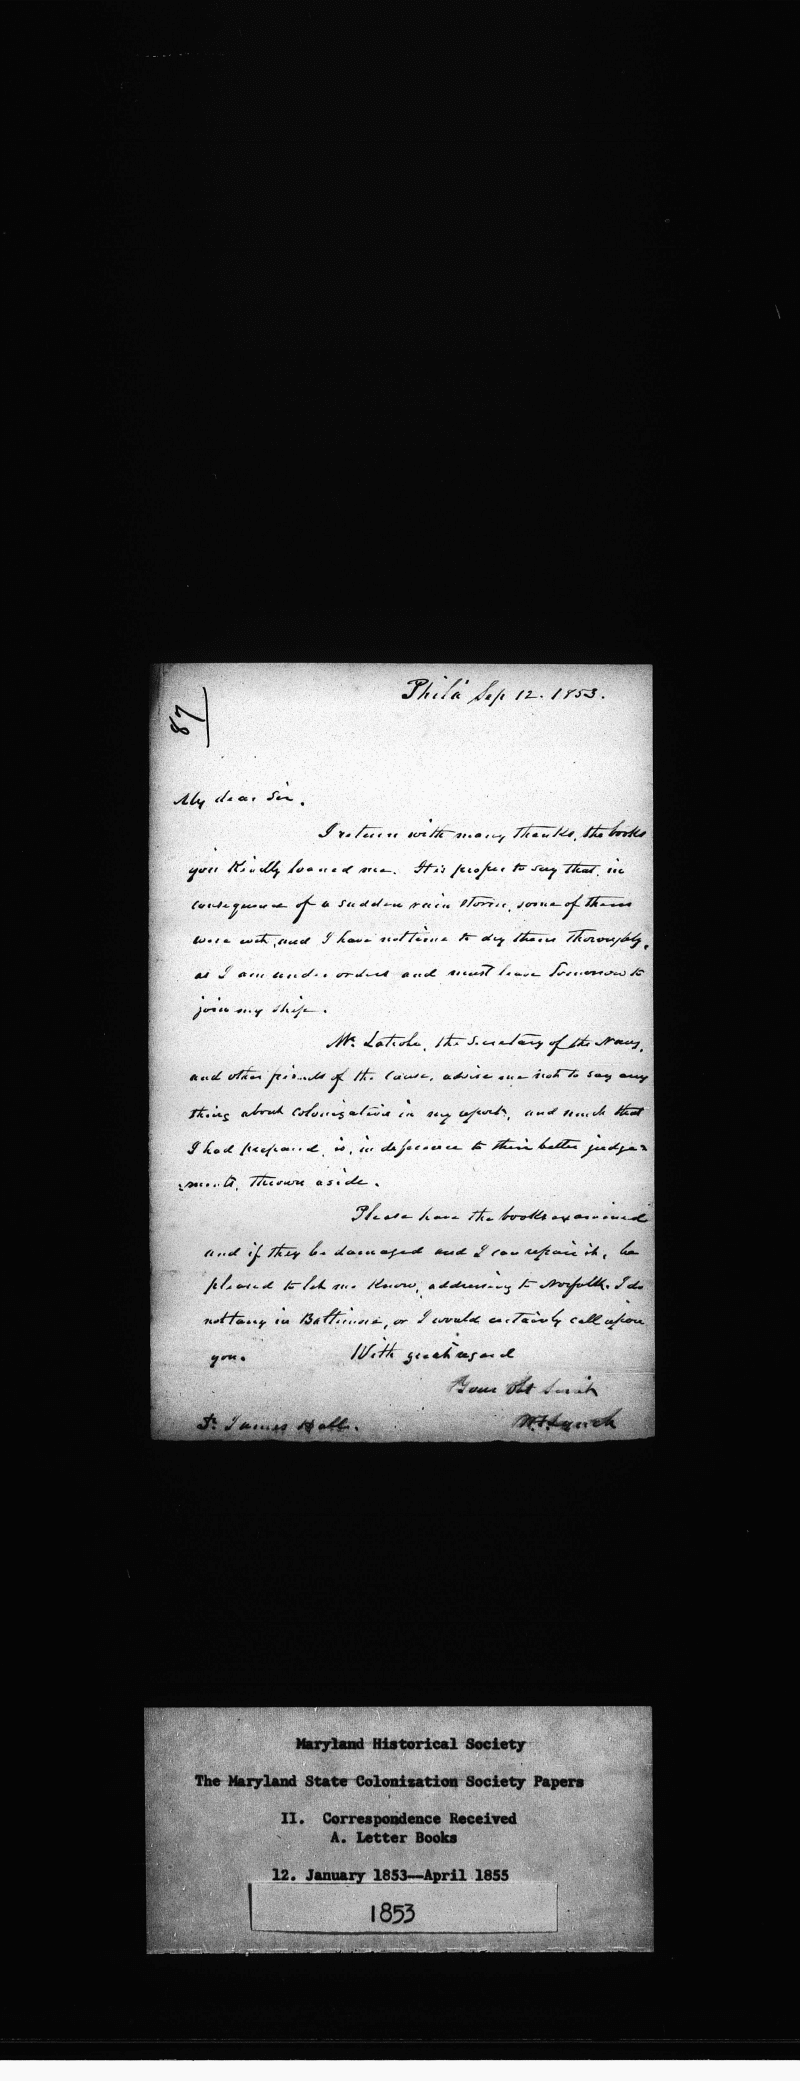 Phila Sep 12. 1853.
87
My dear Sir.
I return with many thanks, the books
you kindly loaned me. It is proper to say that, in
consequence of a sudden rain storm, some of them
were wet, and I have not time to dry them thoroughly,
as I am under orders and must leave tomorrow to
join my ship.
Mr. Latrobe, the Secretary of the Navy,
and other friends of the cause, advise me not to say any
thing about colonization in my report, and much that
I had prepared, is, in deference to their better judge-
-ments, thrown aside.
Please have the books examined
and if they be damaged and I can repair it, be
pleased to let me know, addressing to Norfolk. I do
not tarry in Baltimore, or I would certainly call upon
you. With great regard
Your Obt Servt
W. F. Lynch
Dr. James Hall.
Maryland Historical Society
The Maryland State Colonization Society Papers
II. Correspondence Received
A. Letter Books
12. January 1853--April 1855
1853